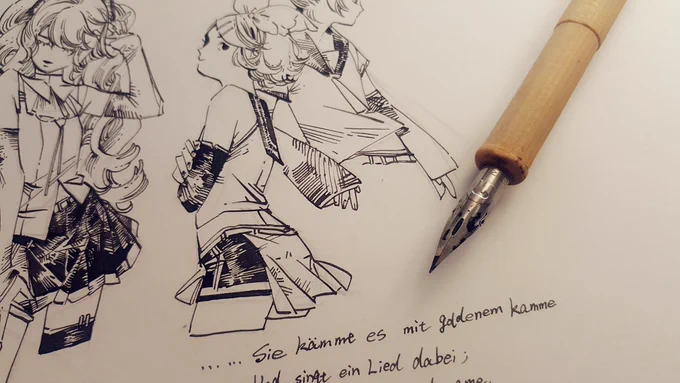 ...... Sie kämmt es mit goldenem kamme
Und singt ein Lied dabei;